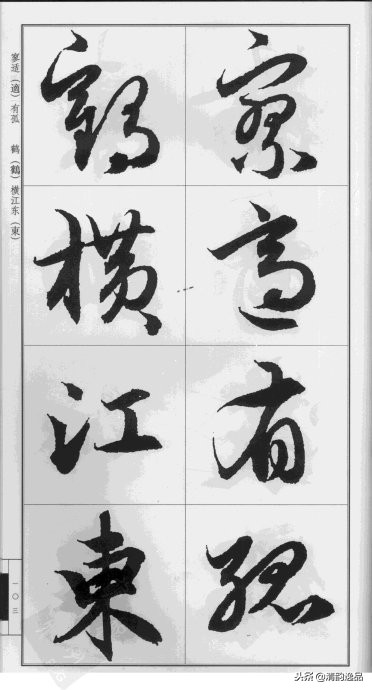 寥適有孤
鶴横江東
寥适(適)有孤　鹤(鶴)横江东(東)
一〇三
头条 @清韵逸品